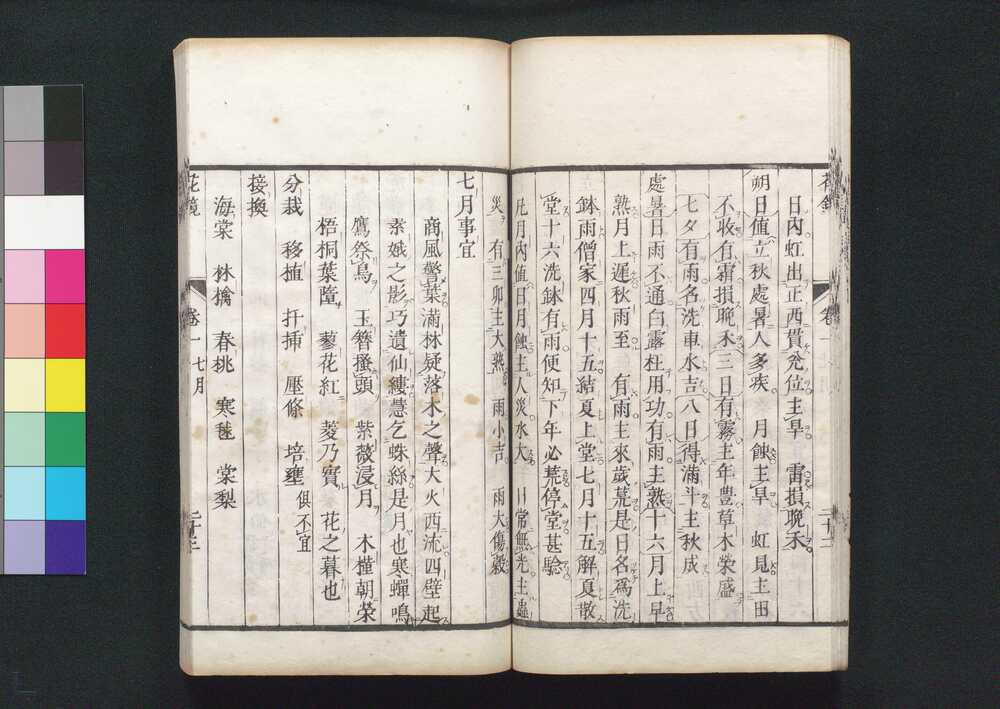 日內虹出正西貫兊位主旱　雷損晚禾
朔日値立秋處暑人多疾　月蝕主旱　虹見主田
不收有霜損晚禾三日有霧主年豊草木榮盛
七夕有雨名洗車水吉八日得滿斗主秋成
處暑日雨不通白露枉用功有雨主熟十六月上早
熟月上遲秋雨至　有雨主來歲荒是日名爲洗
鉢雨僧家四月十五結夏上堂七月十五解夏散
堂十六洗鉢有雨便知下年必荒停堂甚騐
凡月內値日月蝕主人災水大　日常無光主蟲
災　有三卯主大熟　雨小吉　雨大傷穀
七月事宜
商風警葉滿林疑落木之聲大火西流四壁起
素娥之影巧遺仙縷慧乞蛛絲是月也寒蟬鳴
鷹祭鳥　玉簪搔頭　紫薇浸月　木槿朝榮
梧桐葉隕　蓼花紅　菱乃實　花之暮也
分栽　移植　扦挿　壓條　培壅俱不宜
接換
海棠　林檎　春桃　寒毬　棠梨
花鏡　卷一　七月　二十三